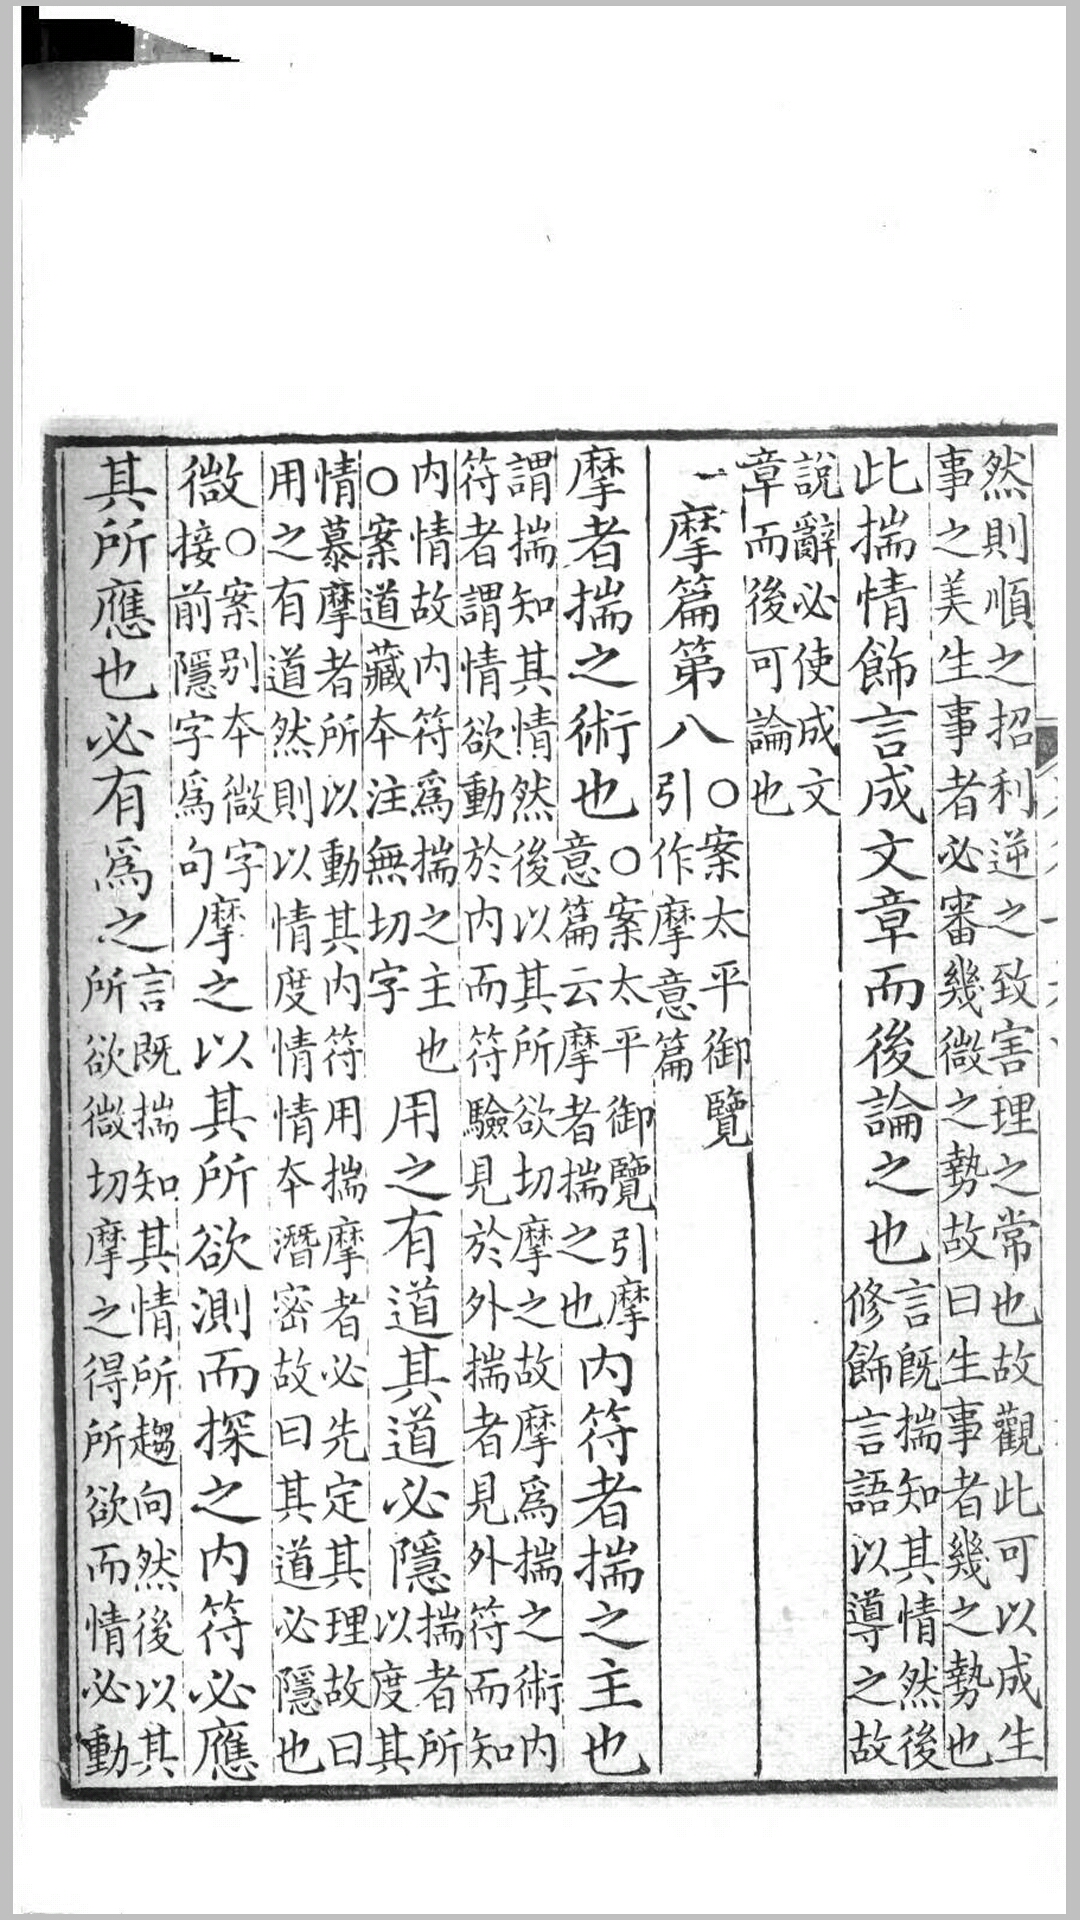 然則順之招利逆之致害理之常也故觀此可以成生
事之美生事者必審幾微之勢故曰生事者幾之勢也
此揣情飾言成文章而後論之也
言既揣知其情然後
修飾言語以導之故
說辭必使成文
章而後可論也
摩篇第八
○案太平御覽
引作摩意篇
摩者揣之術也
○案太平御覽引摩
意篇云摩者揣之也
内符者揣之主也
謂揣知其情然後以其所欲切摩之故摩爲揣之術内
符者謂情欲動於内而符驗見於外揣者見外符而知
内情故内符爲揣之主也
○案道藏本注無切字
用之有道其道必隱
揣者所
以度其
情慕摩者所以動其内符用揣摩者必先定其理故曰
用之有道然則以情度情情本潛密故曰其道必隱也
微
○案别本微字
接前隱字爲句
摩之以其所欲測而探之内符必應
其所應也必有爲之
言既揣知其情所趨向然後以其
所欲微切摩之得所欲而情必動